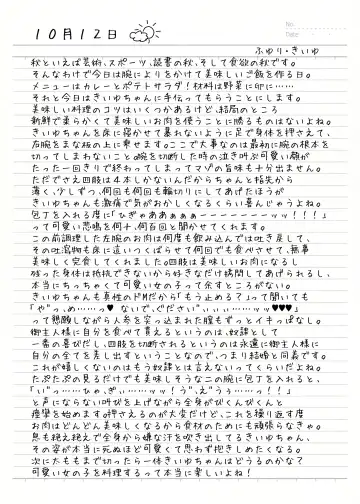 10月12日
No.
Date
ふゆり・きいゆ
秋といえば芸術、スポーツ、読書の秋、そして食欲の秋です。
そんなわけで今日は腕によりをかけて美味しいご飯を作る日。
メニューはカレーとポテトサラダ!材料は野菜に卵に……
それと今日はきいゆちゃんに手伝ってもらうことにします。
美味しい料理のコツはいくつかあるけど、結局のところ
新鮮で柔らかくて美味しいお肉を使うことに勝るものはないよね。
きいゆちゃんを床に寝かせて暴れないように足で身体を押さえて、
右腕をまな板の上に乗せます。ここで大事なのは最初に腕の根本を
切ってしまわないこと。腕を切断した時の泣き叫ぶ可愛い顔が
たった一回きりで終わってしまってマゾの旨味も十分出ません。
ただでさえ四肢は4本しかないんだからちゃんと指先から
薄く、少しずつ、何回も何回も輪切りにしてあげたほうが
きいゆちゃんも激痛で気がおかしくなるくらい喜んじゃうよね。
包丁を入れる度に「ひぎゃああぁぁぁーーーーーーーッッ!!!」
って可愛い悲鳴を何十、何百回と聞かせてくれます。
この前調理した左腕のお肉は何度も飲み込んでは吐き戻して、
その吐瀉物も床に這いつくばらせて何回でも食べさせて、無事
美味しく完食してくれました。四肢は美味しいお肉になるし
残った身体は抵抗できないから好きなだけ拷問してあげられるし、
本当にちっちゃくて可愛い女の子って余すところがない。
きいゆちゃんも真性のドMだから「もう止める?」って聞いても
「や゛っ、め……っ♥ ないで、ぐださい゛ぃぃ……ッッ♥♥♥」
って懇願しながら人参を突っ込まれた膣もずっとイキっぱなし。
御主人様に自分を食べて貰えるというのは、奴隷として
一番の喜びだし、四肢を切断されるというのは永遠に御主人様に
自分の全てを差し出すということなので、つまり結婚と同義です。
これが嬉しくないのはもう奴隷とは言えないってくらいだよね。
たぷたぷの見るだけでも美味しそうな二の腕に包丁を入れると、
と声にならない叫びを上げながら全身がびくんびくんと
痙攣を始めます。押さえるのが大変だけど、これを繰り返す度
お肉はどんどん美味しくなるから食材のためにも頑張らなきゃ。
息も絶え絶えで全身から嫌な汗を吹き出してるきいゆちゃん、
その姿が本当に死ぬほど可愛くて思わず抱きしめたくなる。
次に太ももまで切ったら一体きいゆちゃんはどうなるかな?
可愛い女の子を料理するって本当に楽しいよね!